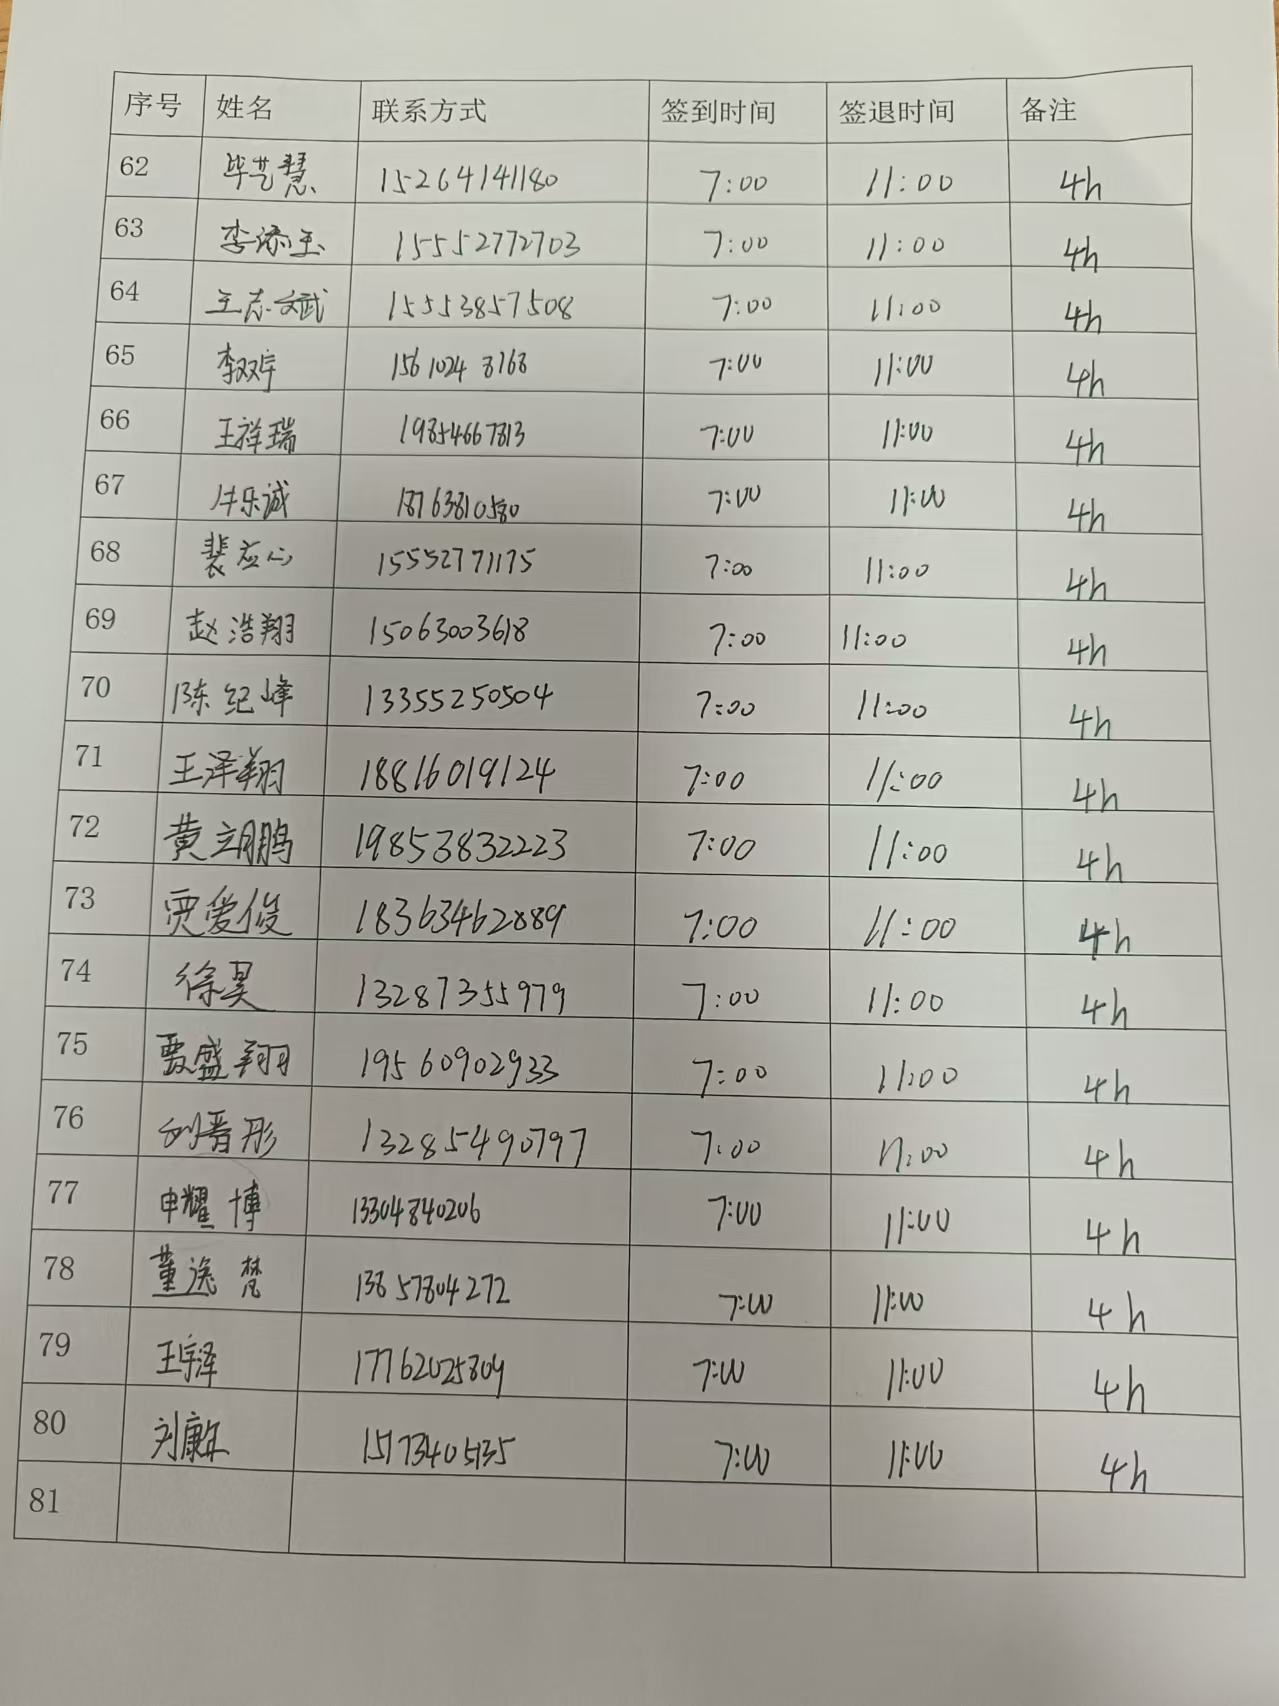 序号 姓名 联系方式 签到时间 签退时间 备注
62 毕艺慧 15264141180 7:00 11:00 4h
63 李添玉 15552772703 7:00 11:00 4h
64 王志斌 15553857508 7:00 11:00 4h
65 李双宇 15610248168 7:00 11:00 4h
66 王祥瑞 19854667813 7:00 11:00 4h
67 牛乐诚 18763810580 7:00 11:00 4h
68 裴应心 15552771175 7:00 11:00 4h
69 赵浩翔 15063003618 7:00 11:00 4h
70 陈纪峰 13355250504 7:00 11:00 4h
71 王泽翔 18816019124 7:00 11:00 4h
72 黄立鹏 19853832223 7:00 11:00 4h
73 贾爱俊 18363462889 7:00 11:00 4h
74 徐昊 13287355979 7:00 11:00 4h
75 贾盛翔 19560902933 7:00 11:00 4h
76 刘晋彤 13285490797 7:00 11:00 4h
77 申耀博 13304840206 7:00 11:00 4h
78 董逸梵 13857804272 7:00 11:00 4h
79 王宇泽 17762025809 7:00 11:00 4h
80 刘康 15173405135 7:00 11:00 4h
81